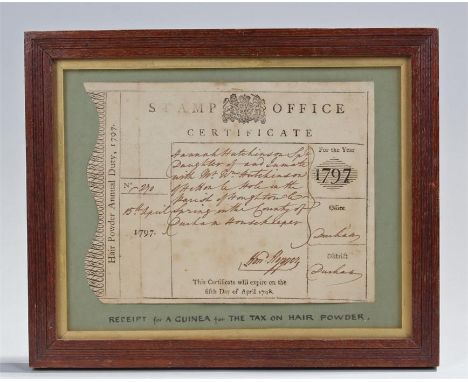 Hair Powder Annual Duty, 1797.
STAMP OFFICE
CERTIFICATE
No. 270
15th April
1797.
Hannah Hutchinson
Daughter of and Inmate
with Mr. Wm. Hutchinson
of Hetton le Hole in the
Parish of Houghton le
Spring in the County of
Durham Housekeeper
This Certificate will expire on the
fifth Day of April 1798.
For the Year
1797
Office
Durham
District
Durham
RECEIPT for A GUINEA for THE TAX ON HAIR POWDER.